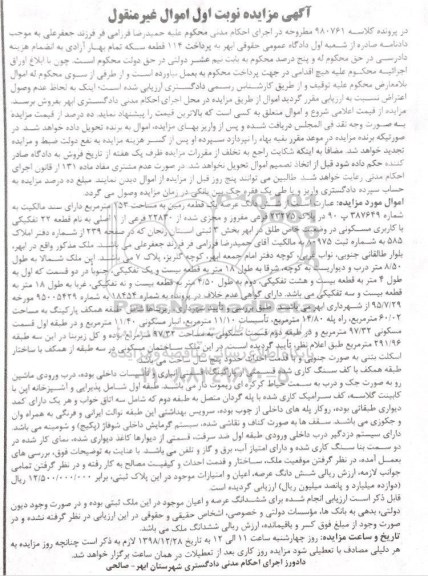 آگهی مزایده نوبت اول اموال غیرمنقول
در پرونده کلاسه ۹۸۰۷۶۱ مطروحه در اجرای احکام مدنی محکوم علیه حمیدرضا قزرامی فر فرزند جعفرعلی به موجب
دادنامه صادره از شعبه اول دادگاه عمومی حقوقی ابهر به پرداخت ۱۱۴ قطعه سکه تمام بهار آزادی به انضمام هزینه
دادرسی در حق محکوم له و پنج درصد محکوم به بابت نیم عشر دولتی در حق دولت محکوم است. چون با ابلاغ اوراق
اجرائیه محکوم علیه هیچ اقدامی در جهت پرداخت محکوم به بعمل نیاورده است و از طرفی از سوی محکوم له اموال
بلامعارض محکوم علیه توقیف و از طریق کارشناس رسمی دادگستری ارزیابی شده است؛ اینک به لحاظ عدم وصول
اعتراض نسبت به ارزیابی مقرر گردید اموال از طریق مزایده در محل اجرای احکام مدنی دادگستری ابهر بفروش برسد.
مزایده از قیمت اعلامی شروع و اموال متعلق به کسی است که بالاترین قیمت را پیشنهاد نماید. ده درصد از قیمت مزایده
به صورت وجه نقد فی المجلس دریافت شده و پس از واریز بهای مزایده، اموال به برنده تحویل داده خواهد شد. در
صورتیکه برنده مزایده در موعد مقرر بقیه بهاء را نپردازد سپرده او پس از کسر هزینه مزایده به نفع دولت ضبط و مزایده
تجدید خواهد شد. مضافاً به اینکه شکایت راجع به تخلف از مقررات مزایده ظرف یک هفته از تاریخ فروش به دادگاه صادر
کننده حکم داده شود قبل از اتخاذ تصمیم اموال تحویل نخواهد شد. در صورت عدم مشتری مفاد ماده ۱۳۱ از قانون اجرای
احکام مدنی رعایت خواهد شد. طالبین می توانند پنج روز قبل از مزایده از اموال دیدن نمایند. مبلغ ده درصد مزایده به
حساب سپرده دادگستری واریز و یا طی یک فقره چک بین بانکی در زمان مزایده وصول می گردد.
اموال مورد مزایده: قطعه زمین به مساحت ۱۵۳ مترمربع دارای سند مالکیت به
شماره ۳۸۷۶۴۹ پ ۹۰ در پلاک ۲۳۴۷۵ فرعی مفروز و مجزی شده از ۲۲۸۳۰ فرعی از ۱ اصلی به نام قطعه ۲۲ تفکیکی
با کاربری مسکونی در وضعیت خاص طلق در ابهر بخش ۳ ثبتی استان زنجان که در صفحه ۲۳۹ از شماره دفتر املاک
۵۸۵ به شماره ثبت ۹۷۵ به مالکیت آقای حمیدرضا قزرامی فر فرزند جعفرعلی می باشد. ملک مذکور واقع در ابهر،
بلوار طالقانی جنوبی، نواب غربی، کوچه دفتر امام جمعه ابهر، کوچه گلریز، پلاک ۷ می باشد. این ملک شمالا به طول
۸/۵۰ متر درب و دیواریست به کوچه، شرقا به طول ۱۸ متر به قطعه بیست و یک تفکیکی، جنوبا در دو قسمت که اول به
طول ۴ متر به قطعه بیست و هشت تفکیکی، دوم به طول ۴/۵۰ متر به قطعه بیست و نه تفکیکی، غربا به طول ۱۸ متر به
قطعه بیست و سه تفکیکی می باشد. دارای گواهی عدم خلاف به شماره ۱۸۴۵۴ به شماره ۹۵۰۰۵۴۳۹ مورخه
۹۵/۷/۲۹ از شهرداری ابهر می باشد. طبقه همکف پارکینگ به مساحت
۶۰/۰۲ مترمربع، راه پله ۱۴/۸۰ مترمربع، تأسیسات ۱۱/۱۰ مترمربع، انبار مسکونی ۱۱/۴۰ مترمربع و در طبقه اول قسمت
مسکونی ۹۷/۳۲ مترمربع و در طبقه دوم قسمت مسکونی به مساحت ۹۷/۳۲ مترمربع بوده و کل زیربنا در این سه طبقه
۲۹۱/۹۶ مترمربع طبق اعلام نظر، تأیید گردیده است.
اسکلت بتنی به صورت جنوبی و با قدمت احداث حدود پنج سال ساخت می باشد.
طبقه همکف با کف سنگ کاری شده به صورت پارکینگ، قسمتی انباری و تأسیسات داخلی بوده، درب ورودی ماشین
رو به صورت جک و درب به سمت حیاط کرکره ای ریموت دار می باشد. طبقه اول شامل پذیرایی و آشپزخانه اپن با
کابینت گلاسه، کف سرامیک کاری شده با پله گردان متصل به طبقه دوم که شامل سه اتاق خواب و هر یک دارای کمد
دیواری طبقاتی بوده، روکار پله های داخلی از چوب بوده، سرویس بهداشتی این طبقه توالت ایرانی و فرنگی به همراه وان
و جکوزی می باشد. سقف ها به صورت کناف و نقاشی شده، سیستم گرمایش داخلی شوفاژ (پکیج) و شومینه می باشد.
دارای سیستم دزدگیر درب داخلی ورودی طبقه اول ضد سرقت، قسمتی از دیوارها کاغذ دیواری شده، نمای کار شده در
دو سمت بنا سنگ کاری شده و دارای امتیاز آب، برق و گاز و تلفن می باشد. با عنایت به توضیحات فوق، بررسی های
بعمل آمده، در نظر گرفتن موقعیت ملک، ساختار و قدمت احداث و کیفیت مصالح به کار رفته و در نظر گرفتن تمامی
جوانب لازمه، ارزش ریالی شش دانگ عرصه، اعیان و امتیازات موجود در این پلاک ثبتی، برابر ۱۲/۵۰۰/۰۰۰/۰۰۰ ریال
(دوازده میلیارد و پانصد میلیون ریال) ارزیابی گردیده است.
قابل ذکر است ارزیابی انجام شده برای ششدانگ عرصه و اعیان موجود در این ملک ثبتی بوده و در صورت وجود دیون
دولتی، بدهی به بانک ها، مؤسسات دولتی و خصوصی، اشخاص حقیقی و حقوقی در این ارزیابی در نظر گرفته نشده و در
صورت وجود از مبلغ فوق کسر و باقیمانده، ارزش ریالی ششدانگ ملک می باشد.
تاریخ و ساعت مزایده: روز چهارشنبه ساعت ۱۱ الی ۱۲ به تاریخ ۱۳۹۸/۱۲/۲۸ لازم به ذکر است چنانچه روز مزایده به
هر دلیلی مصادف با تعطیلی شود مزایده روز کاری بعد از تعطیلات در همان ساعت برگزار خواهد شد.
دادورز اجرای احکام مدنی دادگستری شهرستان ابهر - صالحی